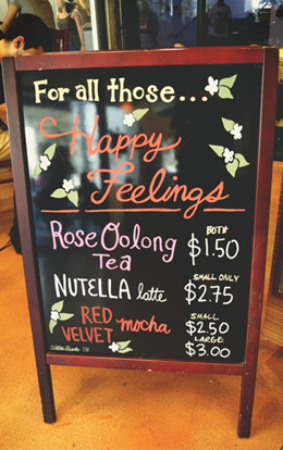 For all those...
Happy
Feelings
Rose Oolong
Tea
BOTH
$1.50
NUTELLA latte
SMALL ONLY
$2.75
RED
VELVET mocha
SMALL
$2.50
LARGE
$3.00